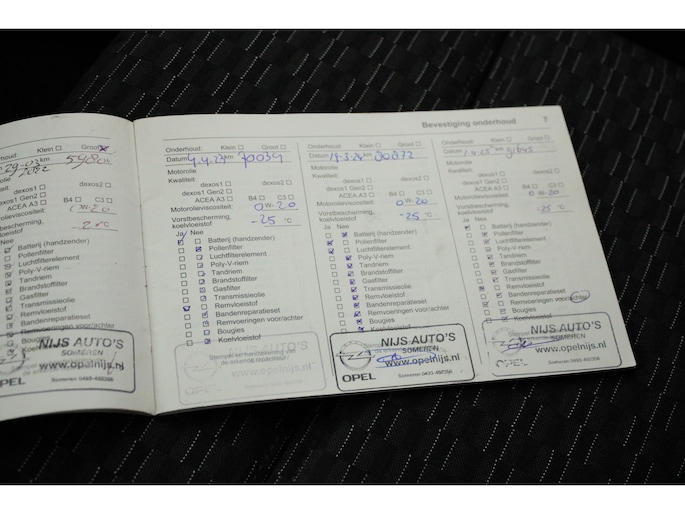 Groot
29-03 km
2022
Ja Nee
Batterij (handzender)
Pollenfilter
Luchtfilterelement
Poly-V-riem
Tandriem
Brandstoffilter
Gasfilter
Transmissieolie
Remvloeistof
Bandenreparatieset
Remvoeringen voor/achter
NIJS AUTO'S
SOMEREN
www.opelnijs.nl
OPEL
Someren 0493-492366
Bevestiging onderhoud 7
Onderhoud: Klein Groot
Datum 4.4.23 km 70039
Motorolie
Kwaliteit:
dexos1 dexos2
dexos1 Gen2
ACEA A3 B4 C3
Motorolieviscositeit: 0W-20
Vorstbescherming,
koelvloeistof -25 °C
Ja Nee
Batterij (handzender)
Pollenfilter
Luchtfilterelement
Poly-V-riem
Tandriem
Brandstoffilter
Gasfilter
Transmissieolie
Remvloeistof
Bandenreparatieset
Remvoeringen voor/achter
Bougies
Koelvloeistof
Stempel en handtekening van
www.opelnijs.nl
Onderhoud: Klein Groot
Datum 19-3-24 km 80872
Motorolie
Kwaliteit:
dexos1 dexos2
dexos1 Gen2
ACEA A3 B4 C3
Motorolieviscositeit: 0W-20
Vorstbescherming,
koelvloeistof -25 °C
Ja Nee
Batterij (handzender)
Pollenfilter
Luchtfilterelement
Poly-V-riem
Tandriem
Brandstoffilter
Gasfilter
Transmissieolie
Remvloeistof
Bandenreparatieset
Remvoeringen voor/achter
Bougies
Koelvloeistof
NIJS AUTO'S
SOMEREN
www.opelnijs.nl
OPEL
Someren 0493-492366
Onderhoud: Klein Groot
Datum km
Motorolie
Kwaliteit:
dexos1 dexos2
dexos1 Gen2
ACEA A3 B4 C3
Motorolieviscositeit: 0W-20
Vorstbescherming,
koelvloeistof -25 °C
Ja Nee
Batterij (handzender)
Pollenfilter
Luchtfilterelement
Poly-V-riem
Tandriem
Brandstoffilter
Gasfilter
Transmissieolie
Remvloeistof
Bandenreparatieset
Remvoeringen voor/achter
Bougies
Koelvloeistof
NIJS AUTO'S
SOMEREN
www.opelnijs.nl
OPEL
Someren 0493-492366